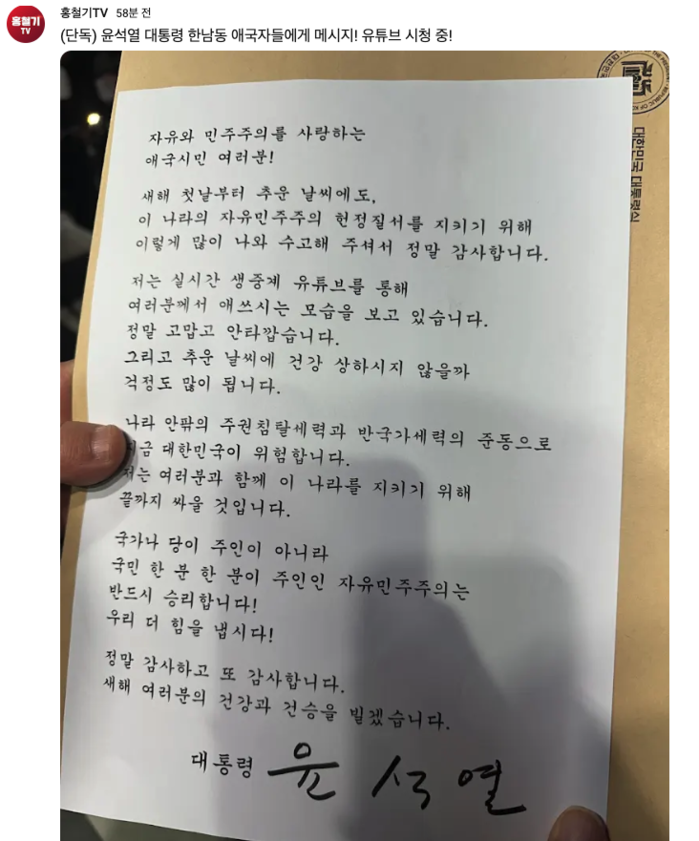 홍철기TV 58분 전
홍철기
TV
(단독) 윤석열 대통령 한남동 애국자들에게 메시지! 유튜브 시청 중!
자유와 민주주의를 사랑하는
애국시민 여러분!
새해 첫날부터 추운 날씨에도,
이 나라의 자유민주주의 헌정질서를 지키기 위해
이렇게 많이 나와 수고해 주셔서 정말 감사합니다.
저는 실시간 생중계 유튜브를 통해
여러분께서 애쓰시는 모습을 보고 있습니다.
정말 고맙고 안타깝습니다.
그리고 추운 날씨에 건강 상하시지 않을까
걱정도 많이 됩니다.
나라 안팎의 주권침탈세력과 반국가세력의 준동으로
지금 대한민국이 위험합니다.
저는 여러분과 함께 이 나라를 지키기 위해
끝까지 싸울 것입니다.
국가나 당이 주인이 아니라
국민 한 분 한 분이 주인인 자유민주주의는
반드시 승리합니다!
우리 더 힘을 냅시다!
정말 감사하고 또 감사합니다.
새해 여러분의 건강과 건승을 빌겠습니다.
대통령 윤석열
대한민국 대통령실